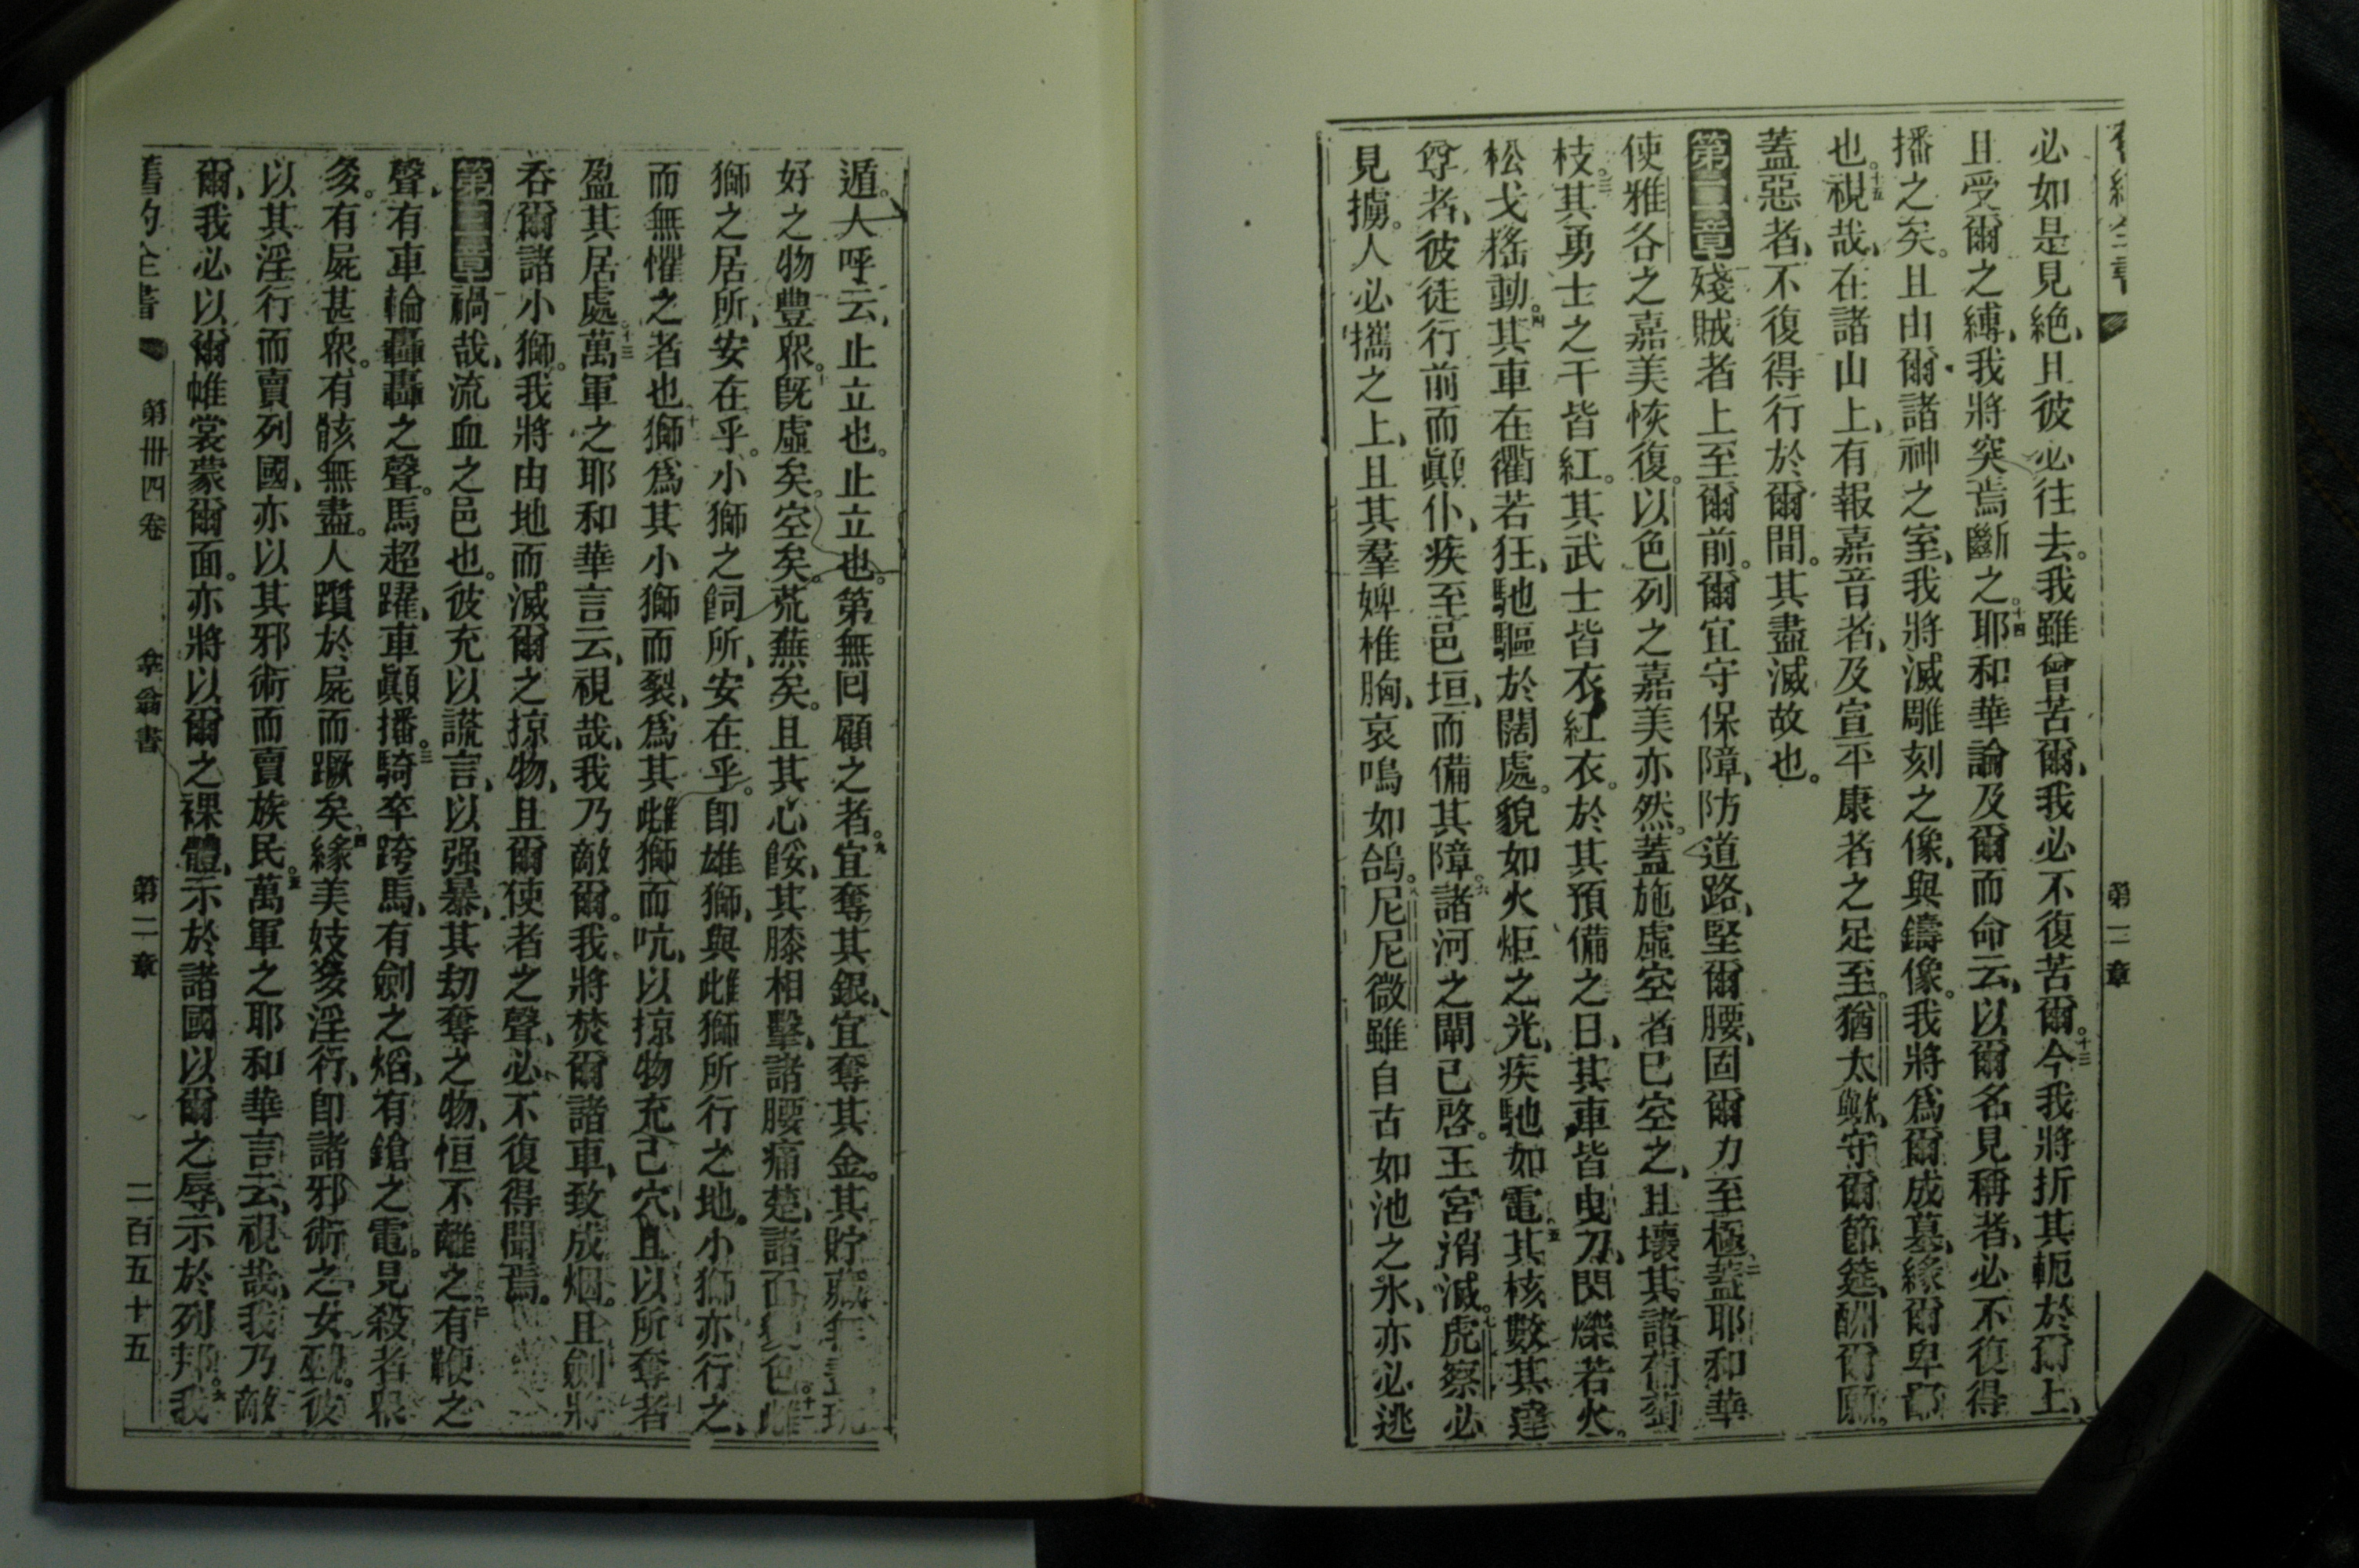 必如是見絶、且彼必往去。我雖曾苦爾、我必不復苦爾。十三今我將折其軛於爾上、
且受爾之縛、我將突焉斷之。十四耶和華論及爾而命云、以爾名見稱者、必不復得
播之矣。且由爾諸神之室、我將滅雕刻之像、與鑄像。我將爲爾成墓、緣爾卑鄙
也。十五視哉、在諸山上、有報嘉音者、及宣平康者之足至。猶太歟、守爾節筵、酬爾願。
蓋惡者、不復得行於爾間。其盡滅故也。
第二章 殘賊者上至爾前。爾宜守保障、防道路、堅爾腰、固爾力至極。二蓋耶和華
使雅各之嘉美恢復。以色列之嘉美亦然。蓋施虛空者已空之、且壞其諸葡萄
枝。三其勇士之干皆紅。其武士皆衣紅衣。於其預備之日、其車皆曳刀、閃爍若火。
松戈搖動。四其車在衢若狂、馳驅於闊處。貌如火炬之光、疾馳如電。五其核數其達
尊者、彼徒行前而顚仆、疾至邑垣、而備其障。六諸河之閘已啓。王宮消滅。七虎察必
見擄。人必攜之上、且其羣婢椎胸、哀鳴如鴿。八尼尼微雖自古如池之水、亦必逃
第二章
遁。人呼云、止立也。止立也。第無回顧之者。九宜奪其銀、宜奪其金。其貯藏
好之物豐眾。十旣虛矣。空矣。荒蕪矣。且其心餒、其膝相擊、諸腰痛楚、諸面變色。十一
獅之居所、安在乎。小獅之飼所、安在乎。卽雄獅、與雌獅所行之地。小獅亦行之、
而無懼之者也。十二獅爲其小獅而裂、爲其雌獅而吭、以掠物充己穴、且以所奪者
盈其居處。十三萬軍之耶和華言云、視哉、我乃敵爾。我將焚爾諸車、致成烟。且劍將
吞爾諸小獅。我將由地而滅爾之掠物、且爾使者之聲、必不復得聞焉。
第三章 禍哉、流血之邑也。彼充以謊言、以强暴、其刧奪之物、恒不離之。二有鞭之
聲、有車輪轟轟之聲。馬超躍、車顚播。三騎卒跨馬、有劍之熖、有鎗之電。見殺者眾
多。有屍甚眾。有骸無盡。人躓於屍而蹶矣。四緣美妓多淫行、卽諸邪術之女。彼
以其淫行而賣列國、亦以其邪術而賣族民。五萬軍之耶和華言云、視哉、我乃敵
爾、我必以爾帷裳蒙爾面。亦將以爾之裸體、示於諸國以爾之辱、示於列邦。六我
舊約全書 第卅四卷 拿翁書 第二章 二百五十五